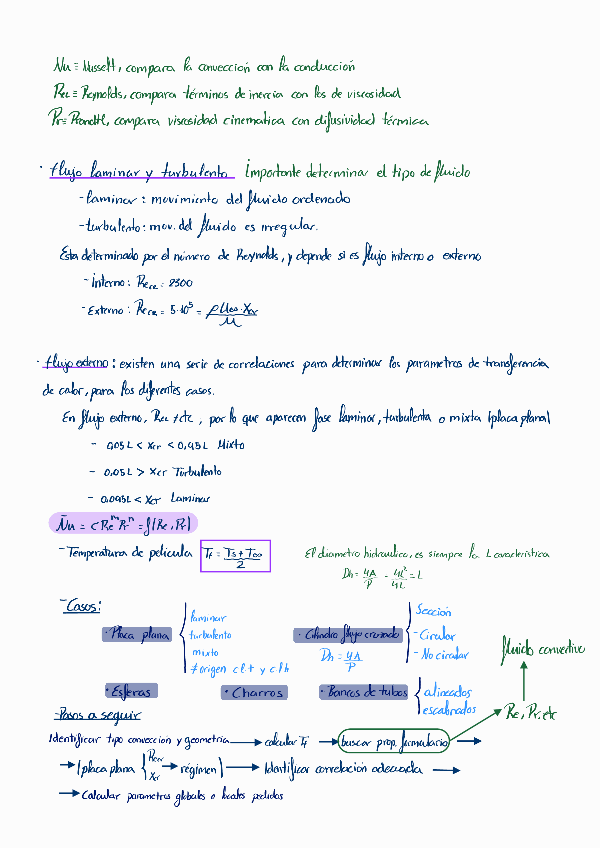 Nu ≡ Nusselt, compara la convección con la conducción
Re ≡ Reynolds, compara términos de inercia con los de viscosidad
Pr ≡ Prandtl, compara viscosidad cinematica con difusividad térmica
· flujo laminar y turbulento Importante determinar el tipo de fluido
- laminar: movimiento del fluido ordenado
- turbulento: mov. del fluido es irregular.
Esta determinado por el número de Reynolds, y depende si es flujo interno o externo
- Interno: Re_cr = 2300
- Externo: Re_cr = 5·10⁵ = ρ u∞ · Xcr / μ
· flujo externo: existen una serie de correlaciones para determinar los parametros de transferencia
de calor, para los diferentes casos.
En flujo externo, Re ≠ cte, por lo que aparecen fase laminar, turbulenta o mixta (placa plana)
- 0,05L < Xcr < 0,95L Mixto
- 0,05L > Xcr Turbulento
- 0,095L < Xcr Laminar
N̄u = C Re^m Pr^n = f(Re, Pr)
- Temperatura de pelicula Tf = Ts + T∞ / 2
El diametro hidraulico, es siempre la L caracteristica
Dh = 4A / P = 4L² / 4L = L
- Casos:
· Placa plana { laminar
turbulento
mixto
≠ origen c l t y c l h
· Cilindro flujo cruzado
Dh = 4A / P
{ Sección
- Circular
- No circular
· Esferas · Chorros · Bancos de tubos { alineados
escabrados
fluido convectivo
Re, Pr, etc
- Pasos a seguir
Identificar tipo convección y geometría → calcular Tf → buscar prop. formulario →
→ (placa plana { Recr
Xcr → régimen) → Identificar correlación adecuada →
→ Calcular parametros globales o locales pedidos